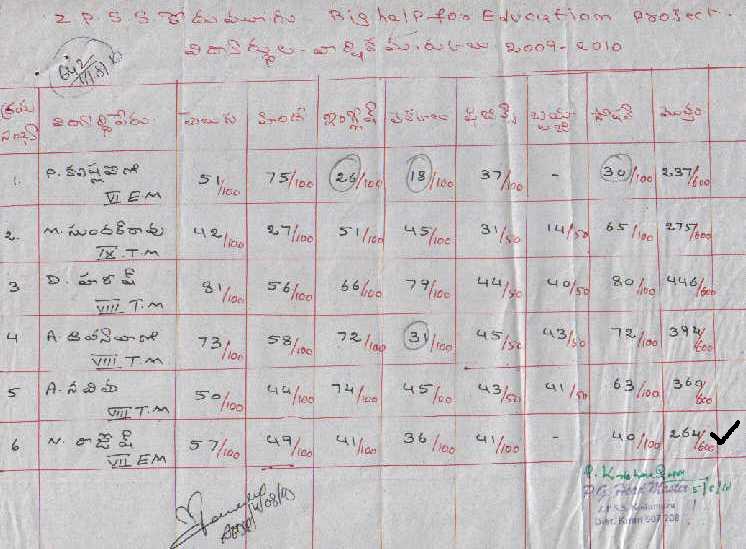 Z P S S కోదుమూరు Big help for Education project.
విద్యార్థుల వార్షిక మార్కులు 2009-2010
క్రమ సంఖ్య విద్యార్థిపేరు తెలుగు హిందీ ఇంగ్లీష్ సోషల్ మొత్తం
1. P. VI E M 51/100 75/100 26/100 18/100 37/100 - 30/100 237/600
2. M. సుందర్ రావు IX T.M 42/100 27/100 51/100 45/100 31/50 14/50 65/100 275/600
3 D. హరీష్ VIII T.M 81/100 56/100 66/100 79/100 44/50 40/50 80/100 446/600
4 A. VIII T.M 73/100 58/100 72/100 31/100 45/50 43/50 72/100 394/600
5 A. నవీన VIII T.M 50/100 44/100 74/100 45/100 43/50 41/50 63/100 360/600
6 N. రాజేష్ VII E M 57/100 49/100 41/100 36/100 41/100 - 40/100 264/600
P.G. Head Master
Z.P.S.S.
Dist. 507 208